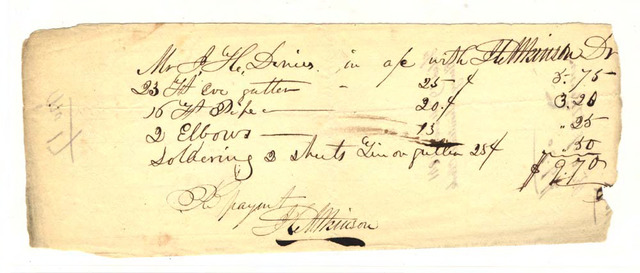 Mr J. H. Denies in a/c with H Atkinson Dr
23 Ft Eve gutter — 25 ¢ 5.75
16 Ft Pipe — 20 ¢ 3.20
2 Elbows — 13 " 25
Soldering 2 sheets Tin on gutter 25¢ 50
$ 9.70
Rc payent
H Atkinson